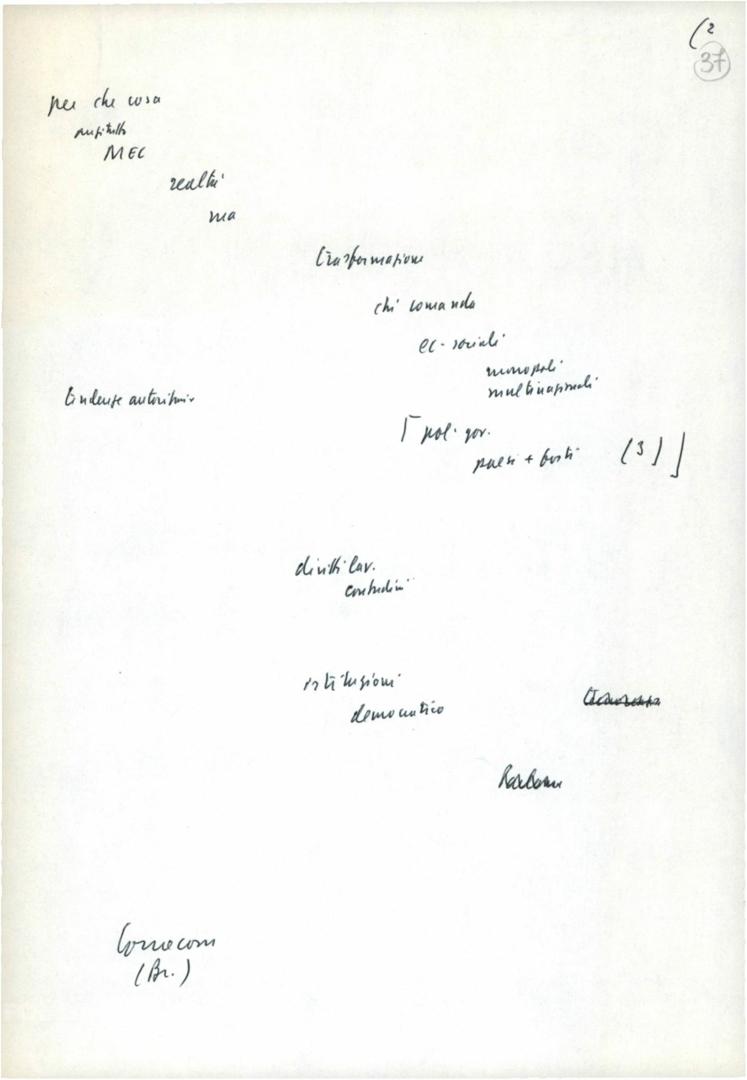 (2
37
per che cosa
anzitutto
MEC
realtà
ma
trasformazione
chi comanda
ec-sociali
monopoli
multinazionali
tendenze autoritarie
[ pol. gov.
paesi + forti (3) ]
diritti lav.
contadini
istituzioni
democratico
(Br.)